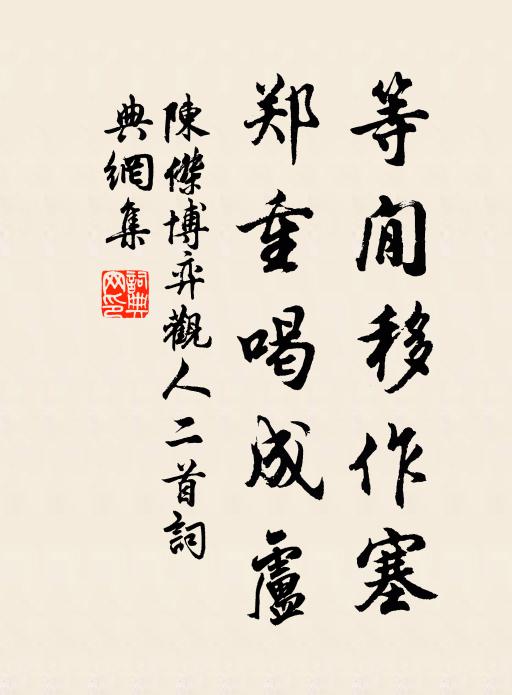 等閒移作塞
郑重喝成盧
陳傑博弈觀人二首詞
典網集
詞典網印